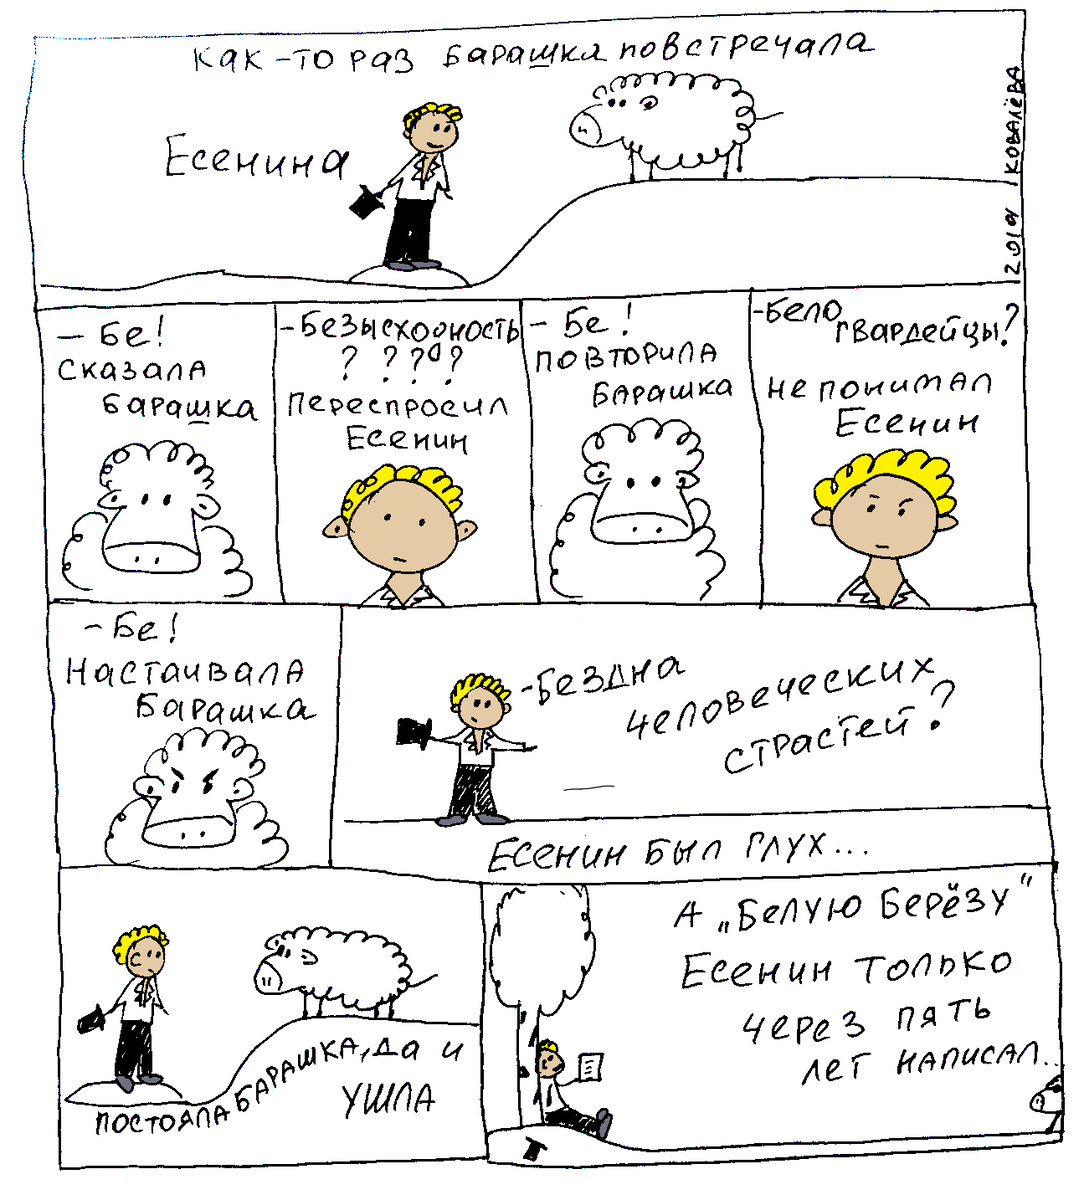 Как-то раз барашка повстречала
Есенина
2019 1КОВАЛЁВА
- Бе!
сказала
барашка
- Безысходность
? ? ? ?
переспросил
Есенин
- Бе!
повторила
барашка
- Бело
гвардейцы?
не понимал
Есенин
- Бе!
настаивала
барашка
- Бездна
человеческих
страстей?
Есенин был глух...
постояла барашка, да и
ушла
А „Белую берёзу"
Есенин только
через пять
лет написал...